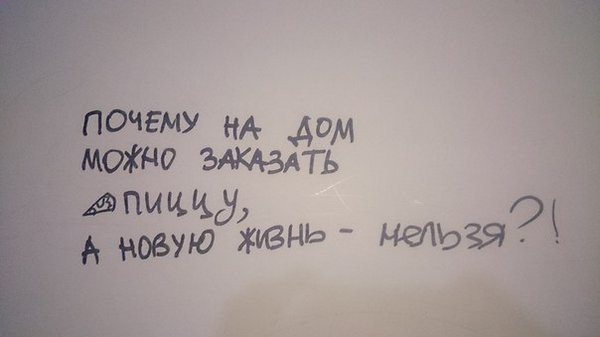 ПОЧЕМУ НА ДОМ
МОЖНО ЗАКАЗАТЬ
ПИЦЦУ,
А НОВУЮ ЖИЗНЬ - нельзя?!